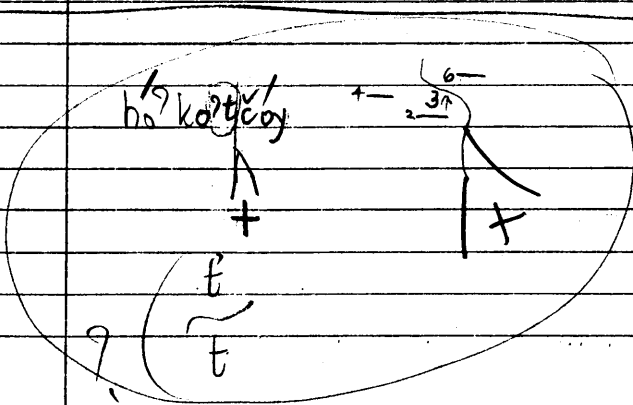 hóʔkoʔtčóy
6—
4—
3↑
2—
+ +
t̓
~
t
?